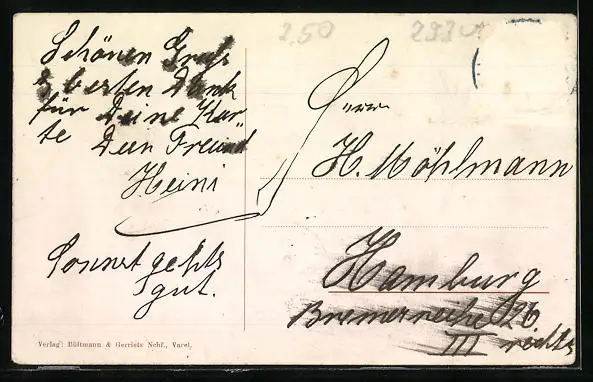 Schönen Gruß
& besten Dank
für Deine Kar-
te Dein Freund
Heini
Sonnst gehts
gut.
2,50
Herrn
H. Möhlmann
Hamburg
Bremerreihe 26
III rechts
Verlag: Bültmann & Gerriets Nchf., Varel.